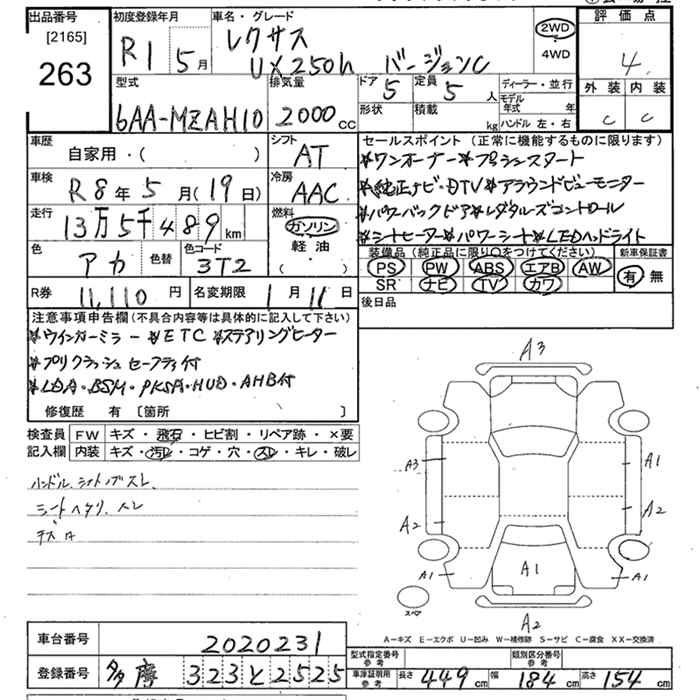 出品番号
[2165]
263
初度登録年月
R1 5月
車名・グレード
レクサス
UX250h バージョンC
2WD
4WD
評価点
4
外装 内装
C C
型式
6AA-MZAH10
排気量
2000cc
ドア 5
定員 5人
形状
積載 kg
ディーラー・並行
モデル年式 年
ハンドル 左・右
車歴
自家用・( )
シフト
AT
車検
R8年5月(19日)
冷房
AAC
走行
13万5千489km
燃料
ガソリン
軽油
・( )
色
アカ
色替
色コード
3T2
R券 11,110円
名変期限 1月11日
セールスポイント(正常に機能するものに限ります)
*ワンオーナー*プッシュスタート
*純正ナビ・DTV*アラウンドビューモニター
*パワーバックドア*レダクルーズコントロール
*シートヒーター*パワーシート*LEDヘッドライト
装備品(純正品に限り○をつけてください)
PS PW ABS エアB AW
SR ナビ TV カワ
新車保証書
有 無
後日品
注意事項申告欄(不具合内容等は具体的に記入して下さい)
*ウインカーミラー*ETC*ステアリングヒーター
*プリクラッシュセーフティ付
*LDA・BSM・PKSA・HUD・AHB付
修復歴 有 [箇所 ]
検査員
記入欄
FW キズ・飛石・ヒビ割・リペア跡・×要
内装 キズ・汚レ・コゲ・穴・スレ・キレ・破レ
ハンドル、シフトノブスレ、
シートヘタリ、スレ
A3
A3
A1
A2
A2
A1
A1
A1
A2
スペア
A-キズ E-エクボ U-凹み W-補修跡 S-サビ C-腐食 XX-交換済
車台番号 2020231
登録番号 多摩 323と2525
型式指定番号
参考
類別区分番号
参考
車庫証明用
参考
長さ 449cm 幅 184cm 高さ 154cm